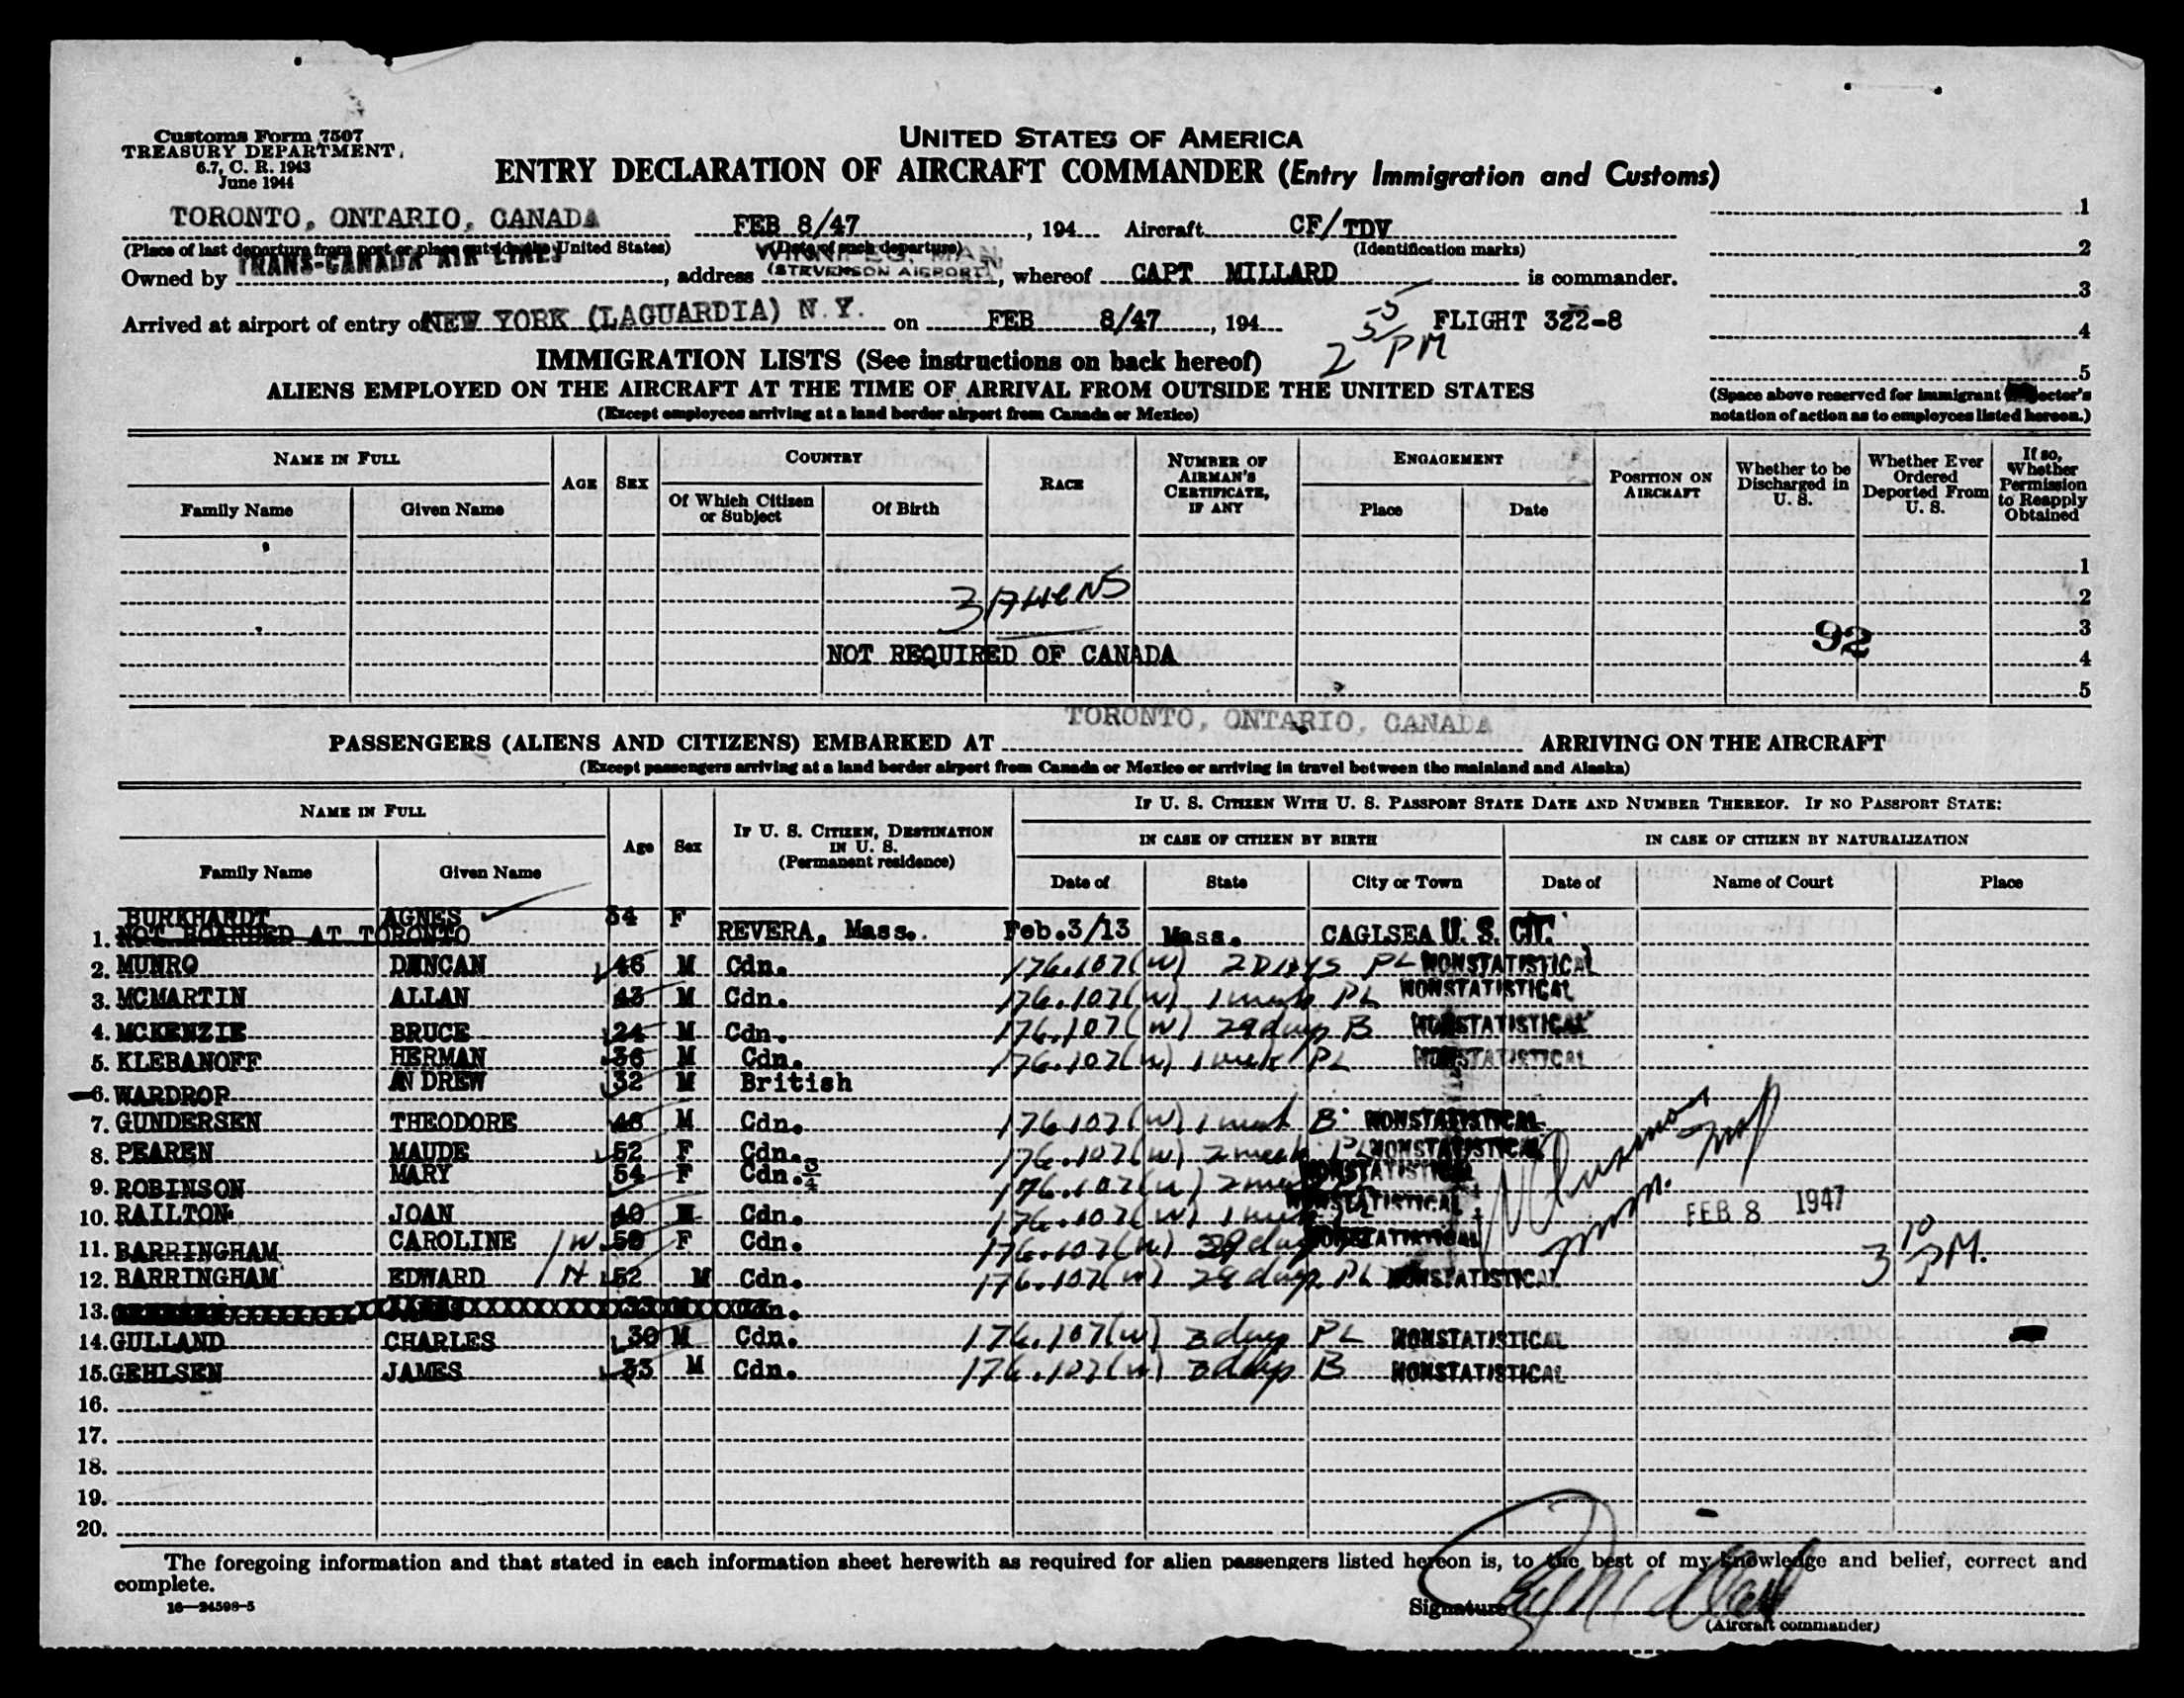 Customs Form 7507
TREASURY DEPARTMENT
6.7, C. R. 1943
June 1944
UNITED STATES OF AMERICA
ENTRY DECLARATION OF AIRCRAFT COMMANDER (Entry Immigration and Customs)
TORONTO, ONTARIO, CANADA FEB 8/47, 194 Aircraft CF/TDV 1
(Place of last departure from port or place outside the United States) (Date of such departure) (Identification marks) 2
WINNIPEG, MAN.
Owned by TRANS-CANADA AIR LINES, address (STEVENSON AIRPORT), whereof CAPT MILLARD is commander. 3
Arrived at airport of entry of NEW YORK (LAGUARDIA) N.Y. on FEB 8/47, 194 2 55 PM FLIGHT 322-8 4
IMMIGRATION LISTS (See instructions on back hereof) 5
ALIENS EMPLOYED ON THE AIRCRAFT AT THE TIME OF ARRIVAL FROM OUTSIDE THE UNITED STATES
(Except employees arriving at a land border airport from Canada or Mexico)
(Space above reserved for immigrant inspector's
notation of action as to employees listed hereon.)
NAME IN FULL AGE SEX COUNTRY RACE NUMBER OF AIRMAN'S CERTIFICATE, IF ANY ENGAGEMENT POSITION ON AIRCRAFT Whether to be Discharged in U. S. Whether Ever Ordered Deported From U. S. If so, Whether Permission to Reapply Obtained
Family Name Given Name Of Which Citizen or Subject Of Birth Place Date
1
2
3 Aliens
3
92
NOT REQUIRED OF CANADA 4
5
TORONTO, ONTARIO, CANADA
PASSENGERS (ALIENS AND CITIZENS) EMBARKED AT ARRIVING ON THE AIRCRAFT
(Except passengers arriving at a land border airport from Canada or Mexico or arriving in travel between the mainland and Alaska)
NAME IN FULL Age Sex IF U. S. CITIZEN, DESTINATION IN U. S. (Permanent residence) IF U. S. CITIZEN WITH U. S. PASSPORT STATE DATE AND NUMBER THEREOF. IF NO PASSPORT STATE:
IN CASE OF CITIZEN BY BIRTH IN CASE OF CITIZEN BY NATURALIZATION
Family Name Given Name Date of State City or Town Date of Name of Court Place
BURKHARDT AGNES 34 F
1. NOT BOARDED AT TORONTO REVERA, Mass. Feb.3/13 Mass. CAGLSEA U. S. CIT.
2. MUNRO DUNCAN 46 M Cdn. 176.107(w) 2 Days PL NONSTATISTICAL
3. MCMARTIN ALLAN 43 M Cdn. 176.107(w) 1 week PL NONSTATISTICAL
4. MCKENZIE BRUCE 24 M Cdn. 176.107(w) 29 days B NONSTATISTICAL
5. KLEBANOFF HERMAN 36 M Cdn. 176.107(w) 1 week PL NONSTATISTICAL
6. WARDROP ANDREW 32 M British
7. GUNDERSEN THEODORE 48 M Cdn. 176.107(w) 1 week B NONSTATISTICAL
8. PEAREN MAUDE 52 F Cdn. 176.107(w) 2 week PL NONSTATISTICAL
9. ROBINSON MARY 54 F Cdn. 3/4 176.107(w) 2 NONSTATISTICAL
10. RAILTON JOAN 40 Cdn. 176.107(w) 1 week NONSTATISTICAL FEB 8 1947
11. BARRINGHAM CAROLINE /W 50 F Cdn. 176.107(w) 29 days NONSTATISTICAL 3 10 PM.
12. BARRINGHAM EDWARD /H 52 M Cdn. 176.107(w) 29 days PL NONSTATISTICAL
13.
14. GULLAND CHARLES 30 M Cdn. 176.107(w) 3 days PL NONSTATISTICAL
15. GEHLSEN JAMES 33 M Cdn. 176.107(w) 3 days B NONSTATISTICAL
16.
17.
18.
19.
20.
The foregoing information and that stated in each information sheet herewith as required for alien passengers listed hereon is, to the best of my knowledge and belief, correct and
complete.
16—24598-5
Signature
(Aircraft commander)